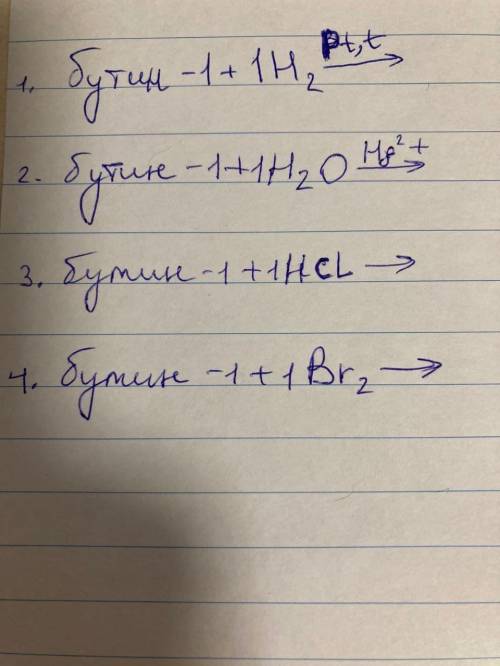 1. бутин -1 + 1H₂ Pt, t →
2. бутин -1 + 1H₂O Hg²+ →
3. бутин -1 + 1HCL →
4. бутин -1 + 1Br₂ →